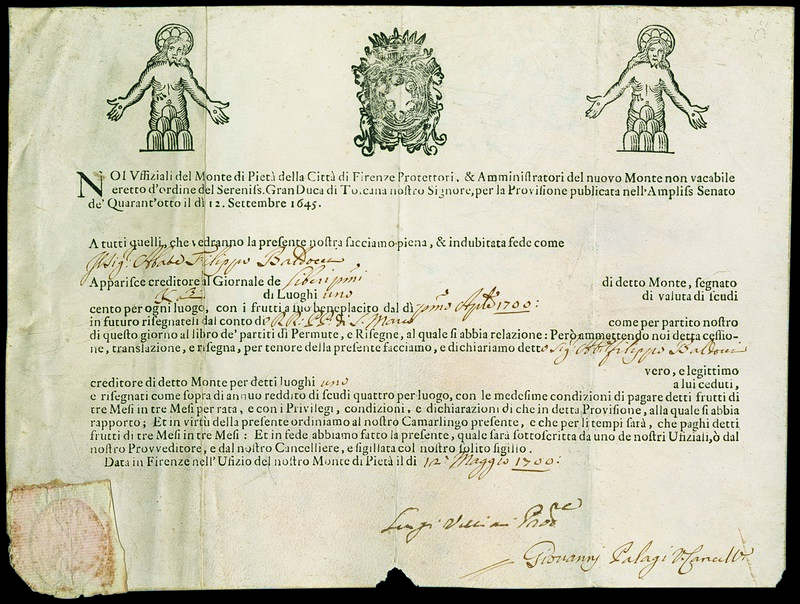 NOI Vffiziali del Monte di Pietà della Città di Firenze Protettori, & Amminiſtratori del nuovo Monte non vacabile
eretto d'ordine del Sereniſs. Gran Duca di Toſcana noſtro Signore, per la Proviſione publicata nell'Ampliſs Senato
de' Quarant'otto il dì 12. Settembre 1645.
A tutti quelli, che vedranno la preſente noſtra facciamo piena, & indubitata fede come
Il Sig. Abate Filippo Baldocci
Appariſce creditore al Giornale de Liberi pmi di detto Monte, ſegnato
di Luoghi uno di valuta di ſcudi
cento per ogni luogo, con i frutti a ſuo beneplacito dal dì pmo Aple 1700:
in futuro riſegnateli dal conto di RR: PP. di S. Marco come per partito noſtro
di queſto giorno al libro de' partiti di Permute, e Riſegne, al quale ſi abbia relazione: Però ammettendo noi detta ceſſio-
ne, translazione, e riſegna, per tenore della preſente facciamo, e dichiariamo detto Sig Ab filippo Baldocci
vero, e legittimo
creditore di detto Monte per detti luoghi uno a lui ceduti,
e riſegnati come ſopra di annuo reddito di ſcudi quattro per luogo, con le medeſime condizioni di pagare detti frutti di
tre Meſi in tre Meſi per rata, e con i Privilegi, condizioni, e dichiarazioni di che in detta Proviſione, alla quale ſi abbia
rapporto; Et in virtù della preſente ordiniamo al noſtro Camarlingo preſente, e che per li tempi ſarà, che paghi detti
frutti di tre Meſi in tre Meſi: Et in fede abbiamo fatto la preſente, quale ſarà ſottoſcritta da uno de noſtri Ufiziali, ò dal
noſtro Provveditore, e dal noſtro Cancelliere, e ſigillata col noſtro ſolito ſigillo.
Data in Firenze nell'Ufizio del noſtro Monte di Pietà il di 12 Maggio 1700:
Luigi
Giovannj Palagi V. Cancell.